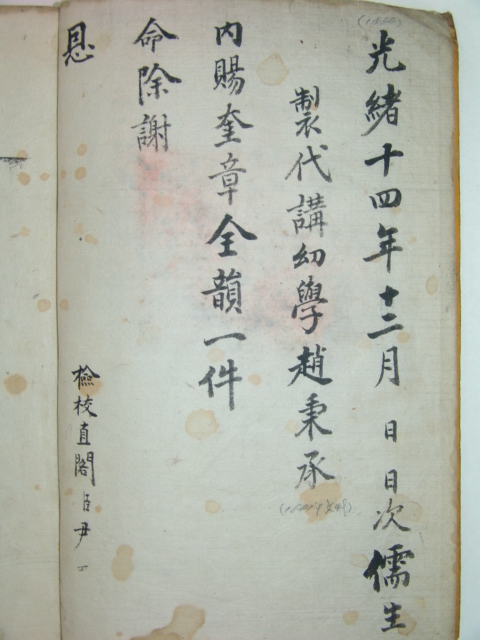 光緖十四年十二月 日 日次儒生
製代講幼學趙秉承
內賜奎章全韻一件
命除謝
恩
檢校直閣臣尹